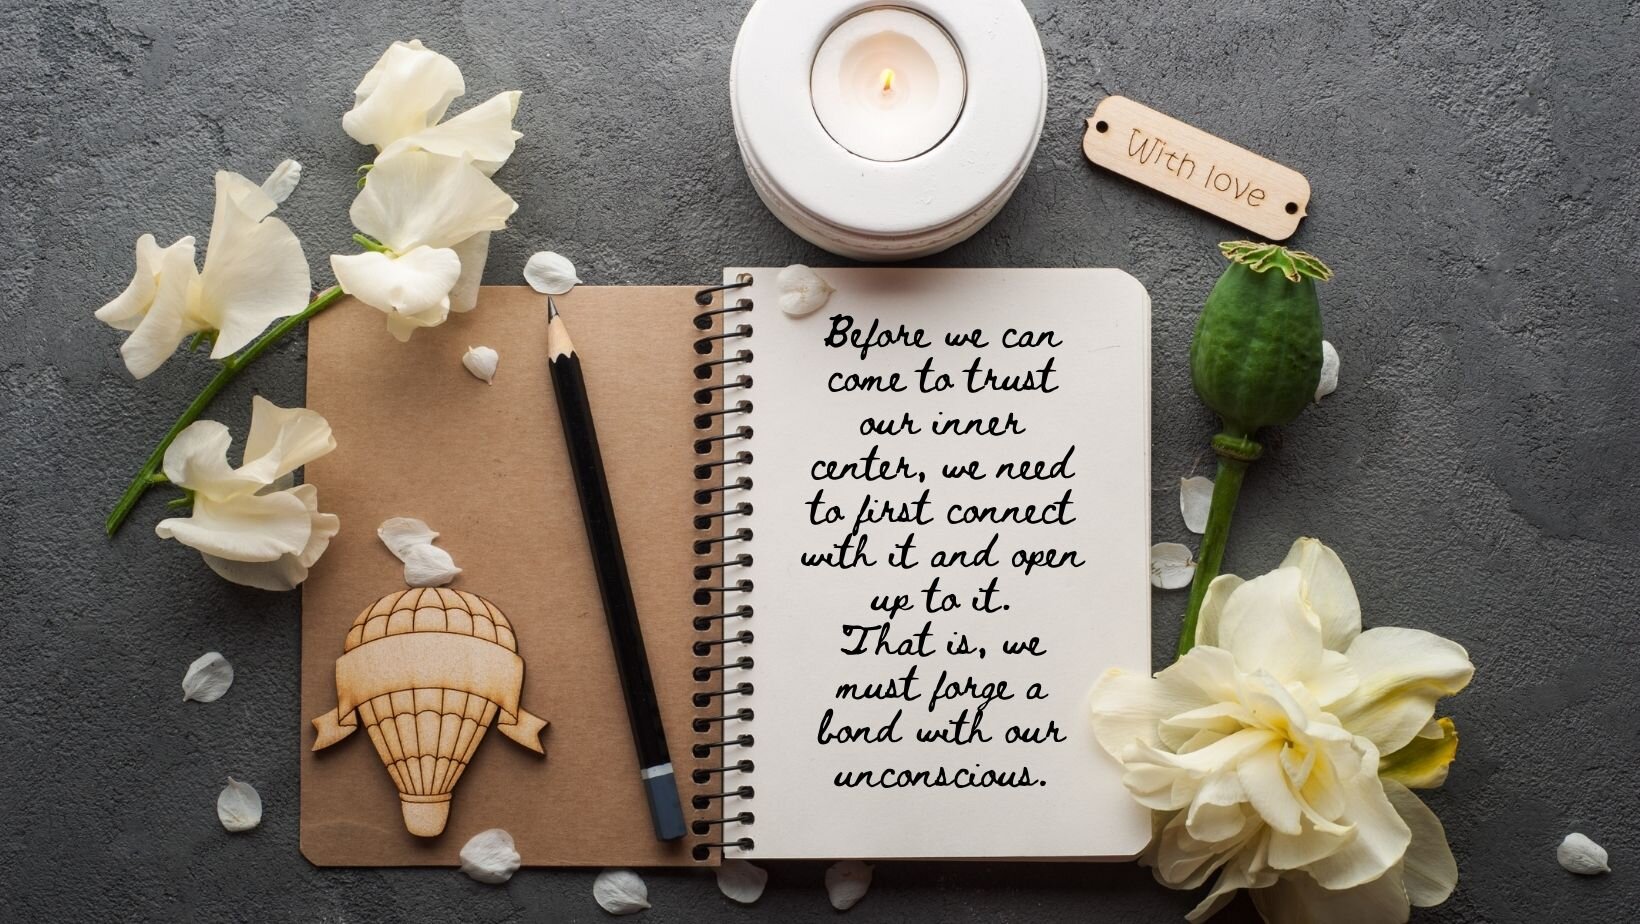 With love
Before we can
come to trust
our inner
center, we need
to first connect
with it and open
up to it.
That is, we
must forge a
bond with our
unconscious.